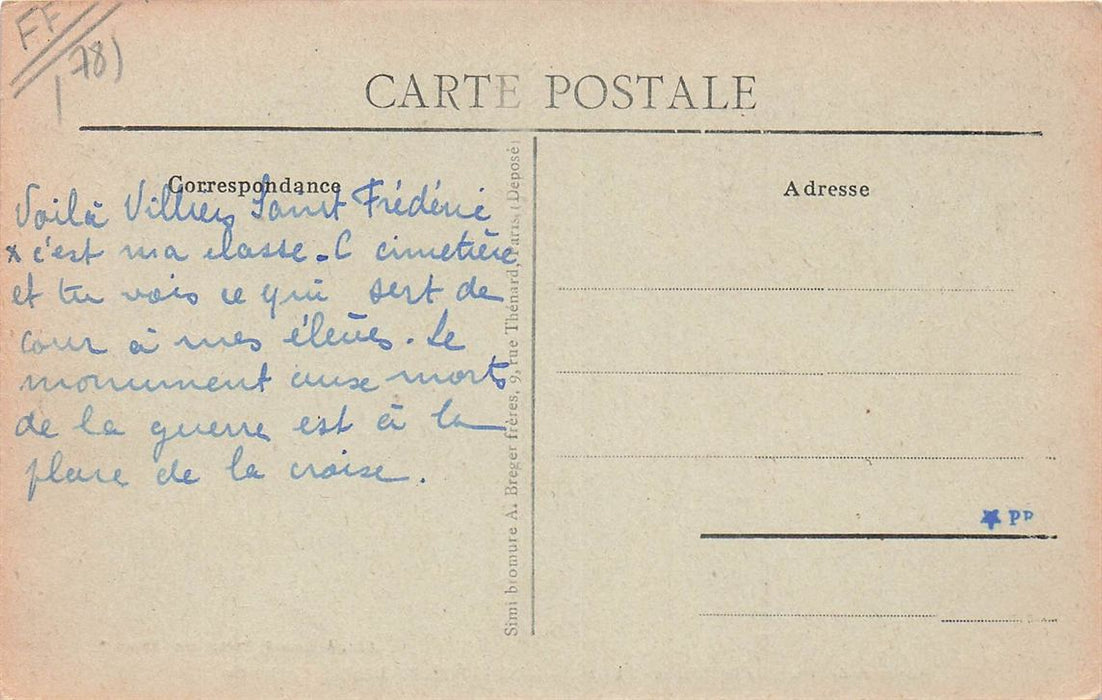 FF
78)
CARTE POSTALE
Correspondance
Adresse
Voilà Villiers Saint Frédéric
x c'est ma classe. C cimetière
et tu vois ce qui sert de
cour à mes élèves. Le
monument aux morts
de la guerre est à la
place de la croise.
Simi bromure A. Breger frères, 9, rue Thénard, Paris (Déposé)
PP